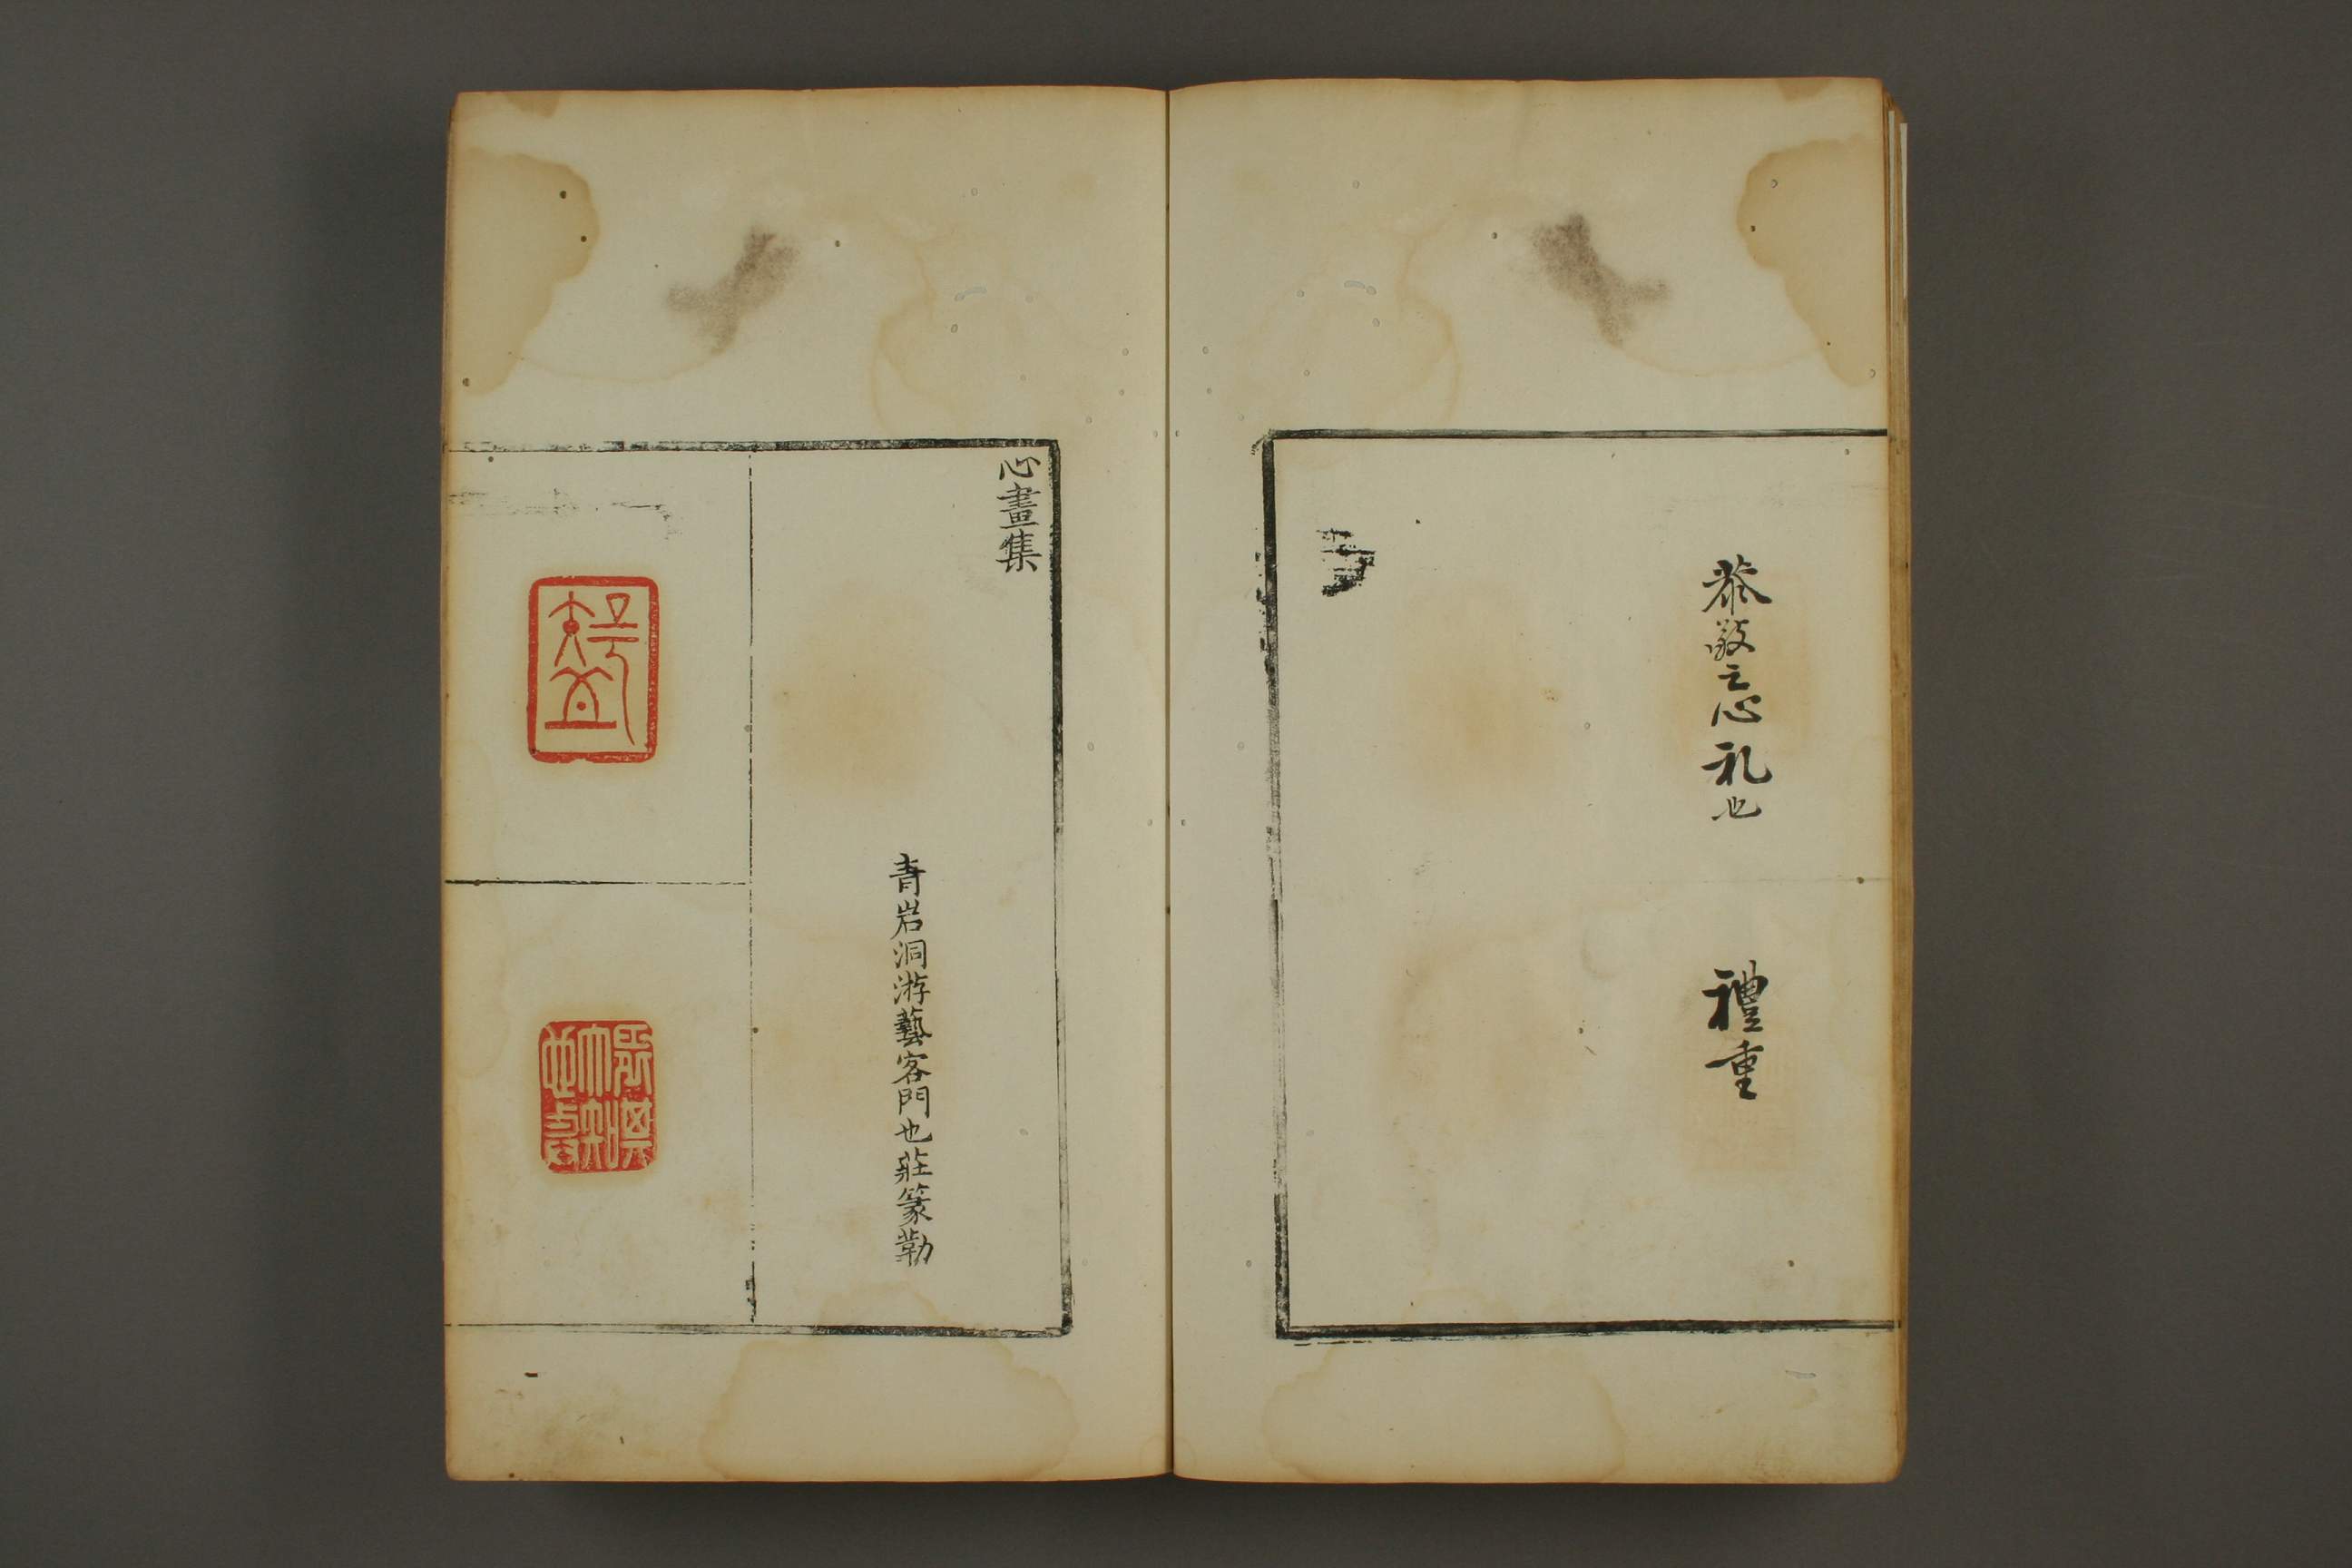 恭敬之心礼也
禮重
心畫集
青岩洞游藝客門也莊篆勒